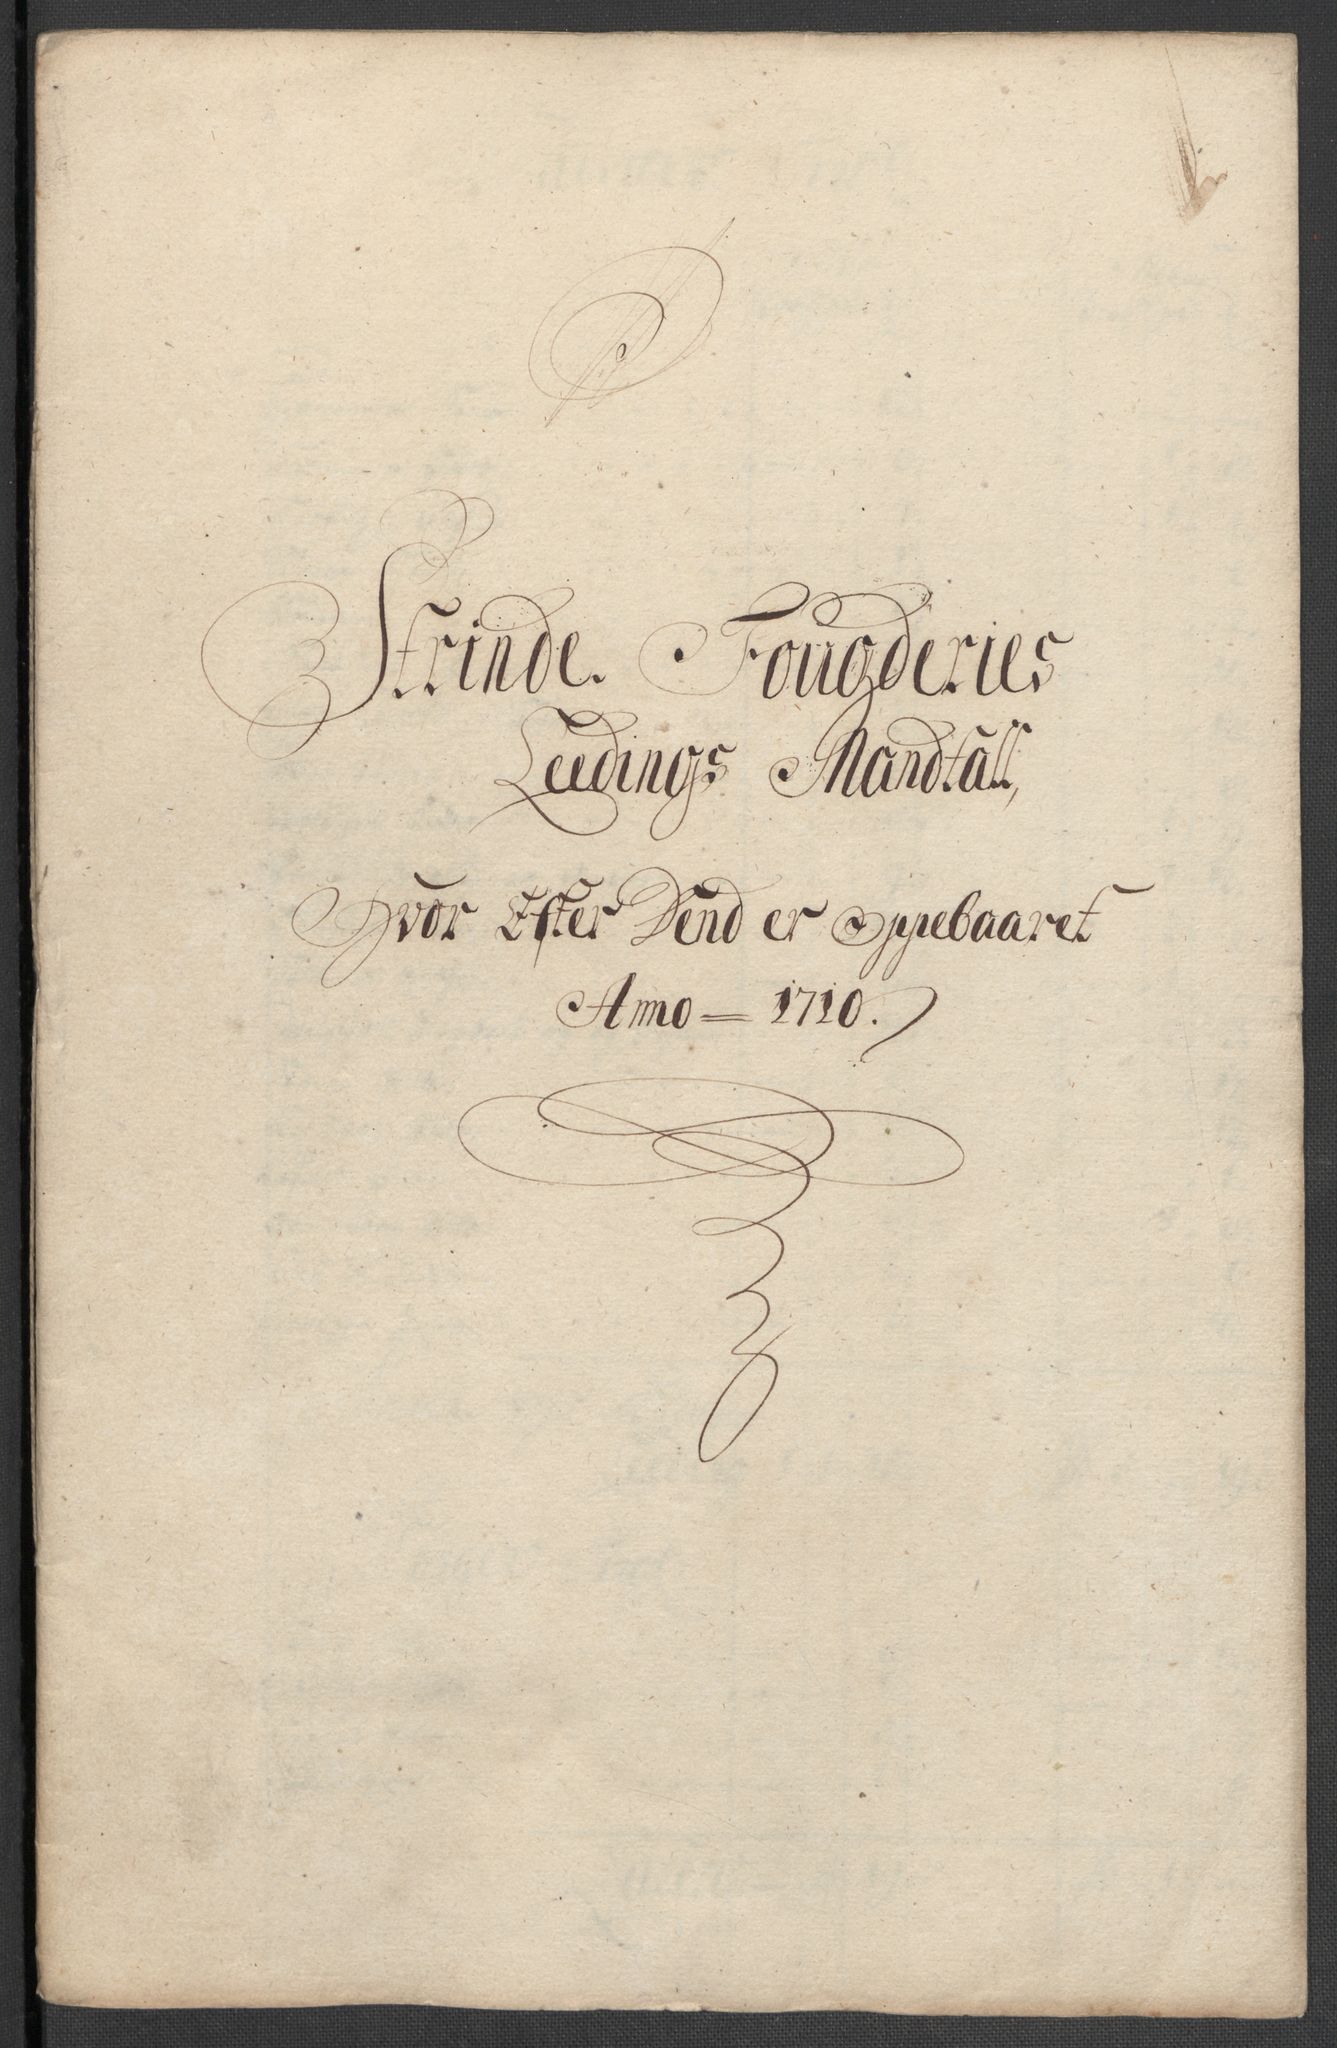 Strinde Fougderies
Leedings Mandtall,
Hvor Efter Dend er Oppebaaret
Anno = 1710.